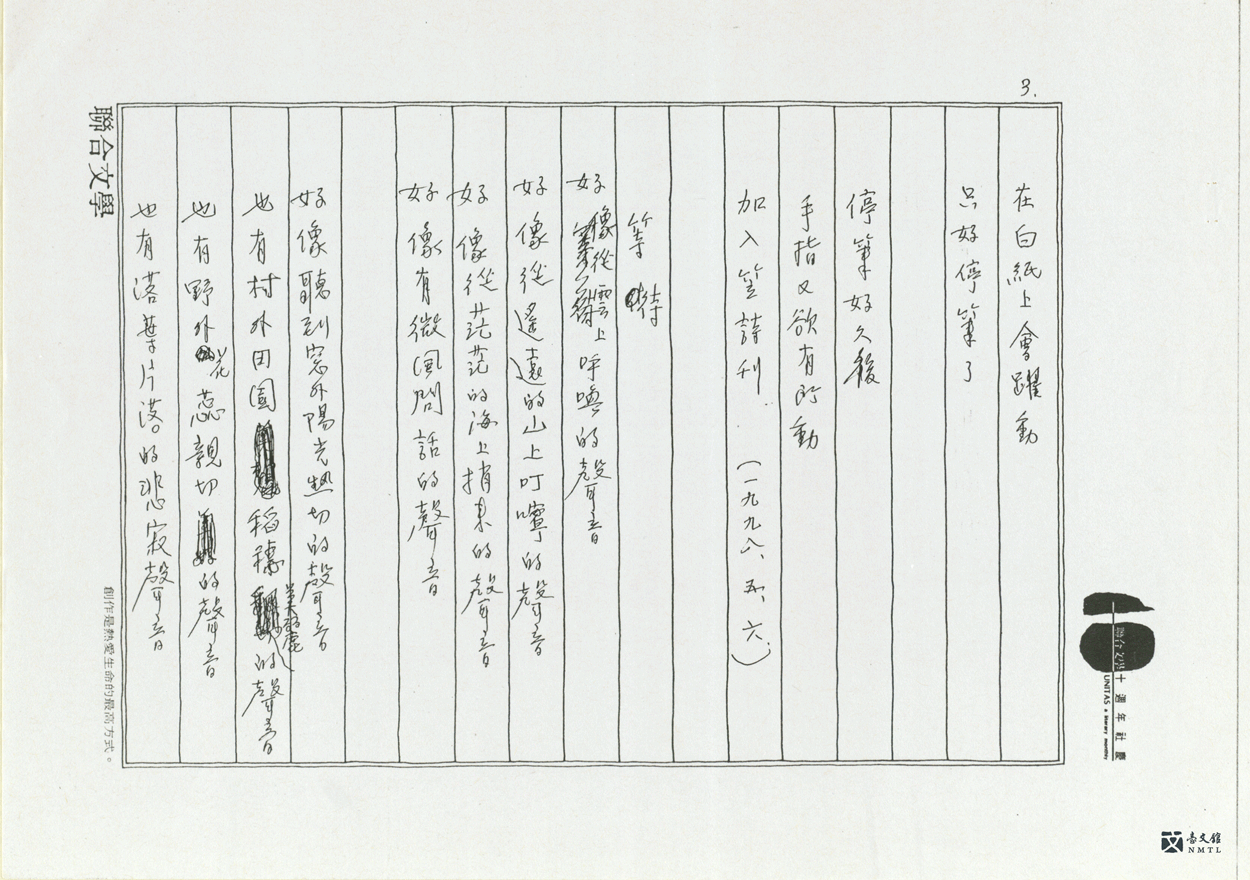 3.
在白紙上會躍動
只好停筆了
停筆好久後
手指又欲有所動
加入笠詩刊．（一九九八、五、六）
等待
好像從雲上呼喚的聲音
好像從遙遠的山上叮嚀的聲音
好像從茫茫的海上捎來的聲音
好像有微風問話的聲音
好像聽到窓外陽光熱切的聲音
也有村外田園稻穗的聲音
也有野外花蕊親切的聲音
也有落葉片落的悲寂聲音
聯合文學
創作是熱愛生命的最高方式。
聯合文學十週年社慶
UNITAS a literary monthly
臺文館
NMTL